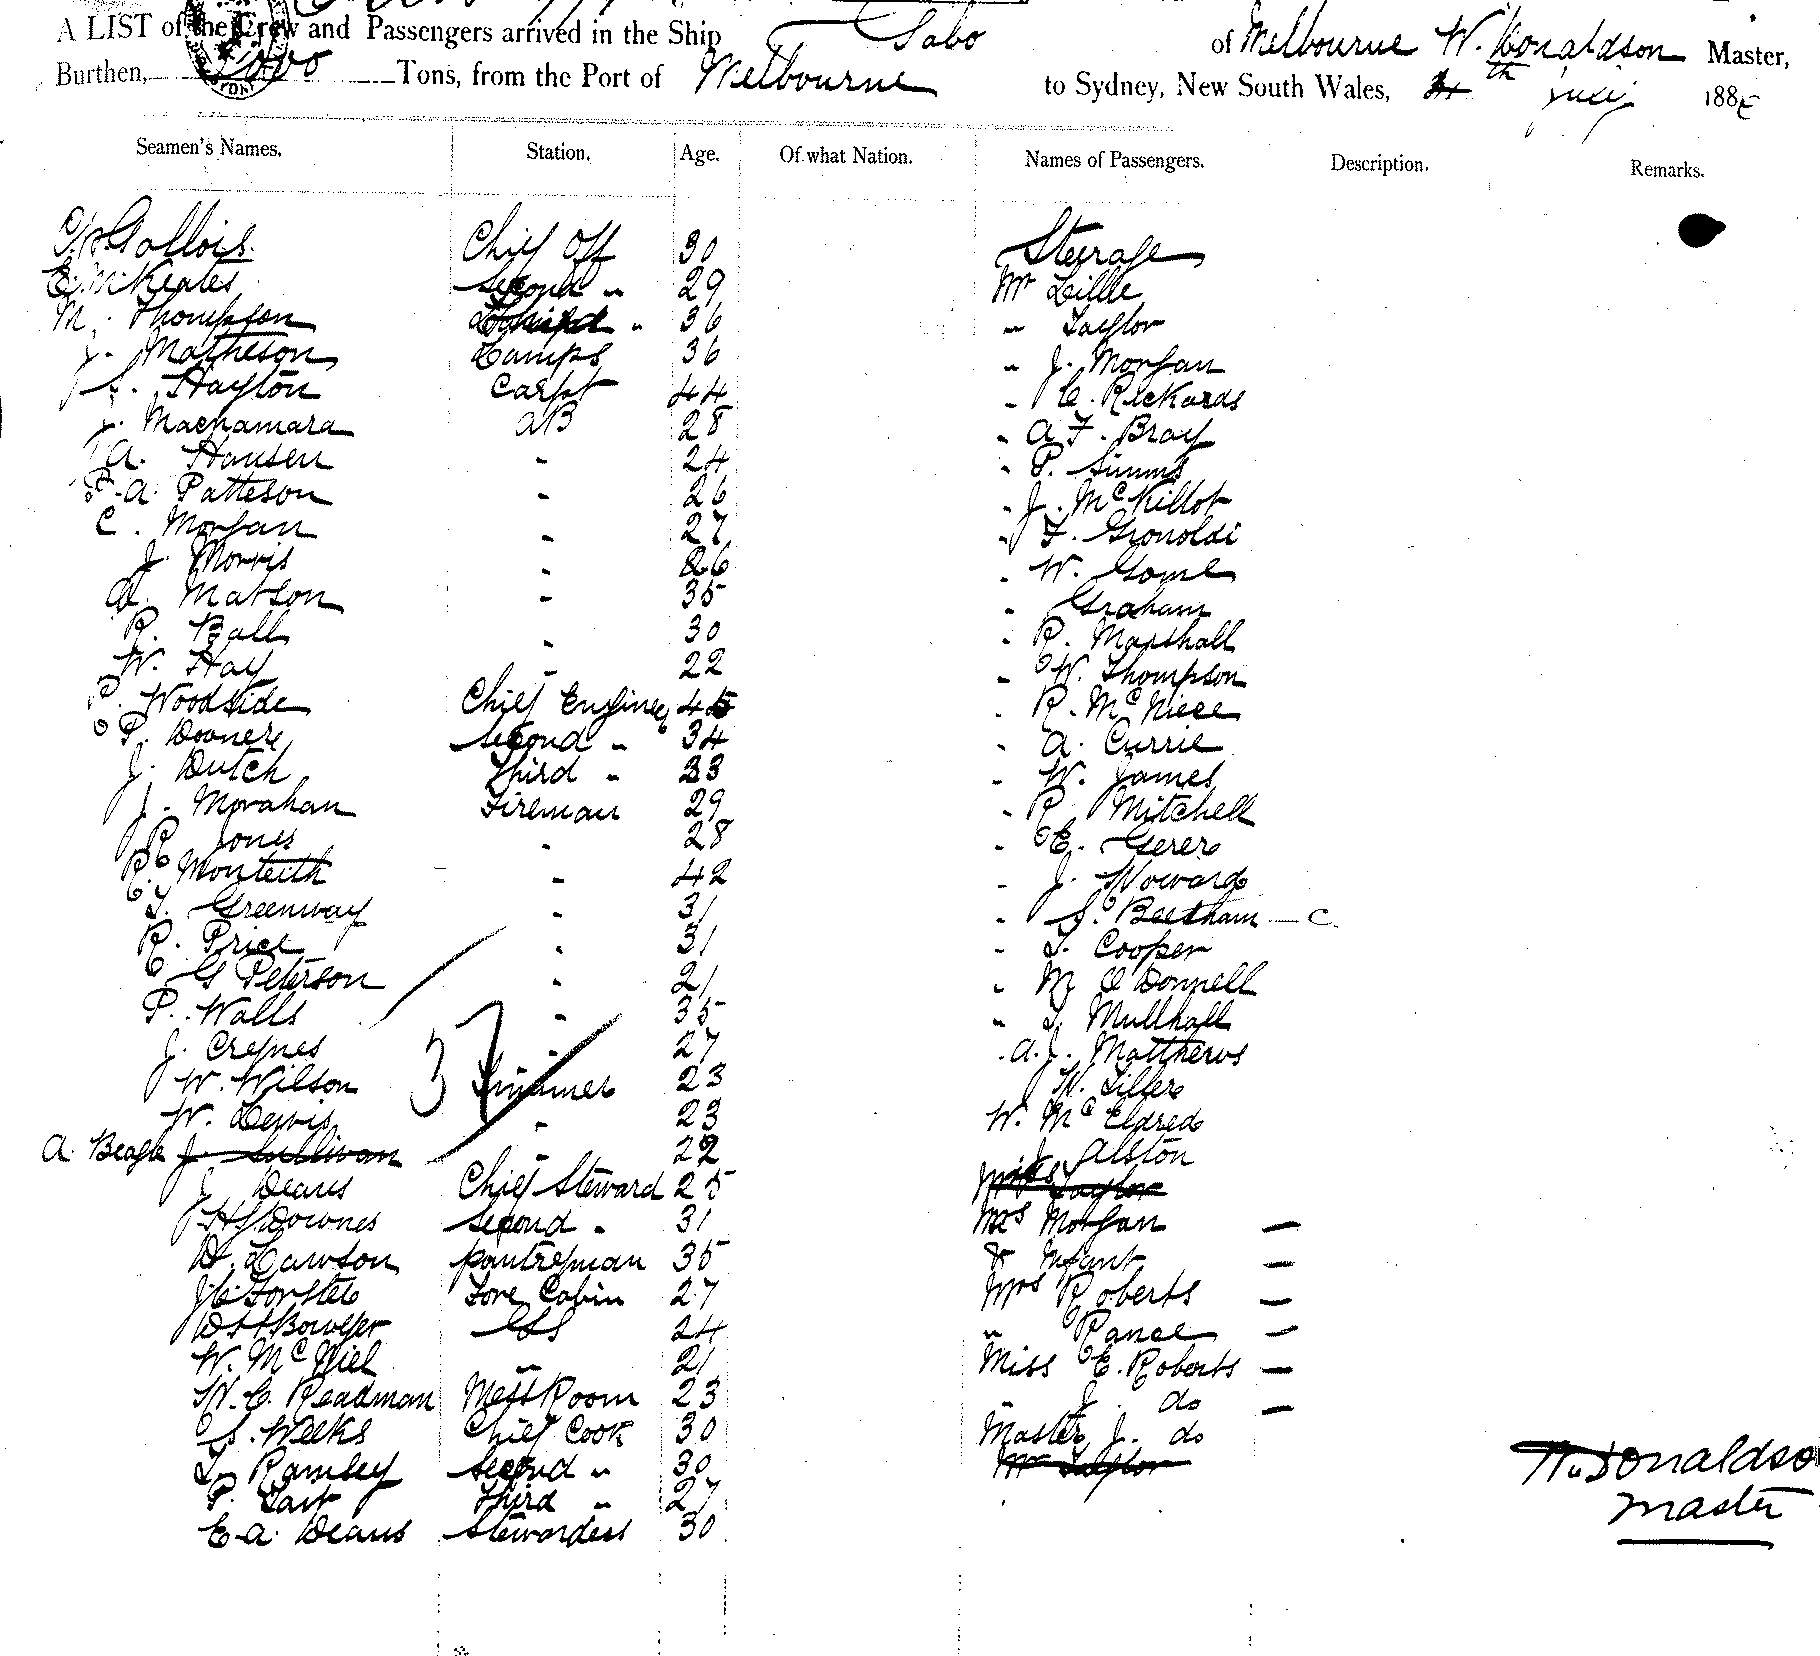 A LIST of the Crew and Passengers arrived in the Ship Sabo of Melbourne W. Donaldson Master,
Burthen, Tons, from the Port of Melbourne to Sydney, New South Wales, 4th July 188
Seamen's Names. Station. Age. Of what Nation. Names of Passengers. Description. Remarks.
Gallois. Chief Off 30 Steerage
E. McKeates Second " 29 Mr Lillie
M. Thompson " 36 " Taylor
J. Matheson Lamps 36 " J. Morgan
S. Hayton Carpt 44 " C. Rickards
J. Macnamara AB 28 " A F. Bray
A. Hansen " 24 " P. Simms
P. A. Patteson " 26 " J. McKillot
C. Morgan " 27 " F. Gronoldi
J. Morris " 26 " W. Gome
A. Matson " 35 " Graham
R. Ball " 30 " R. Marshall
W. Hay " 22 " W. Thompson
R. Woodside Chief Engineer 45 " R. McNiece
P. Dooner Second " 34 " A. Currie
J. Dutch Third " 33 " W. James
J. Morahan Fireman 29 " R Mitchell
R Jones " 28 " E. Gerer
R. Monteith " 42 " J. Howard
T. Greenway " 31 " S. Beetham — C
R. Price " 31 " T. Cooper
G Peterson " 21 " M O Donnell
P. Walls " 35 " T. Mullhall
J. Crepnes " 27 " A. J. Matthews
W. Wilson 37 Trimmer 23 W. Liller
W. Lewis " 23 W. McEldred
A. Beagle J. Sullivan " 22 J Alston
J Deans Chief Steward 25 Taylor
H J Downes Second " 31 Mrs Morgan —
D. Lawson pantreyman 35 & Infant —
J C Forster Fore Cabin 27 Mrs Roberts —
D H Bowyer 24 " Rance —
W. McNiel " 21 Miss E. Roberts —
W. C. Readman Mess Room 23 " J. do —
S. Weeks Chief Cook 30 Master J. do
T. Ramsey Second " 30 Mr Taylor
P. Tait Third " 27
E A. Deans Stewardess 30
W. Donaldso
Master